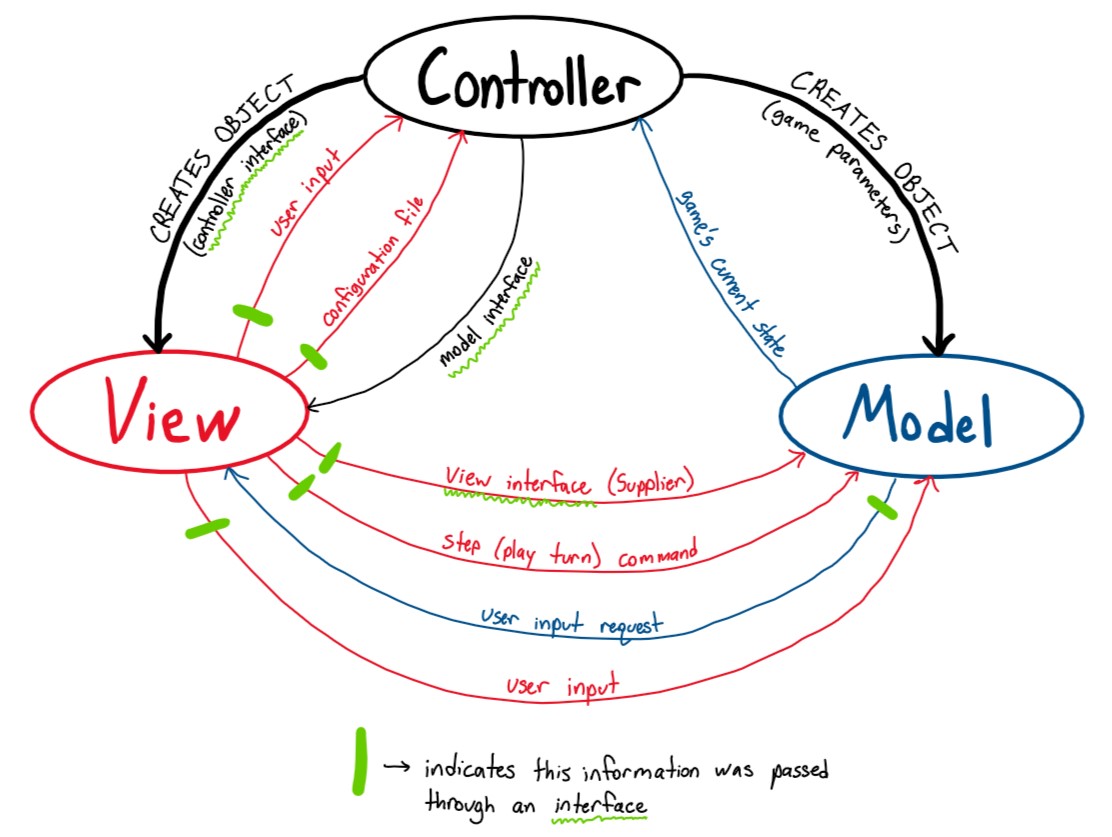 Controller
CREATES OBJECT
(controller interface)
user input
configuration file
model interface
game's current state
CREATES OBJECT
(game parameters)
View
Model
View interface (Supplier)
step (play turn) command
user input request
user input
→ indicates this information was passed
through an interface